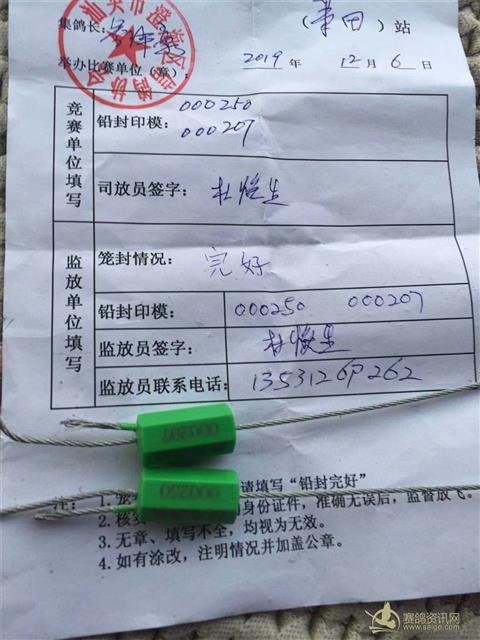 集鸽长:
(莆田)站
举办比赛单位(章):
2019年 12月6日
汕头市澄海区信鸽协会
竞赛单位填写
铅封印模: 000250
000207
司放员签字:
监放单位填写
笼封情况: 完好
铅封印模: 000250 000207
监放员签字:
监放员联系电话:
000207
000250
请填写“铅封完好”
注: 1. 笼
2. 核实 身份证件，准确无误后，监督放飞。
3. 无章、填写不全，均视为无效。
4. 如有涂改，注明情况并加盖公章。
赛鸽资讯网
www.saige.com